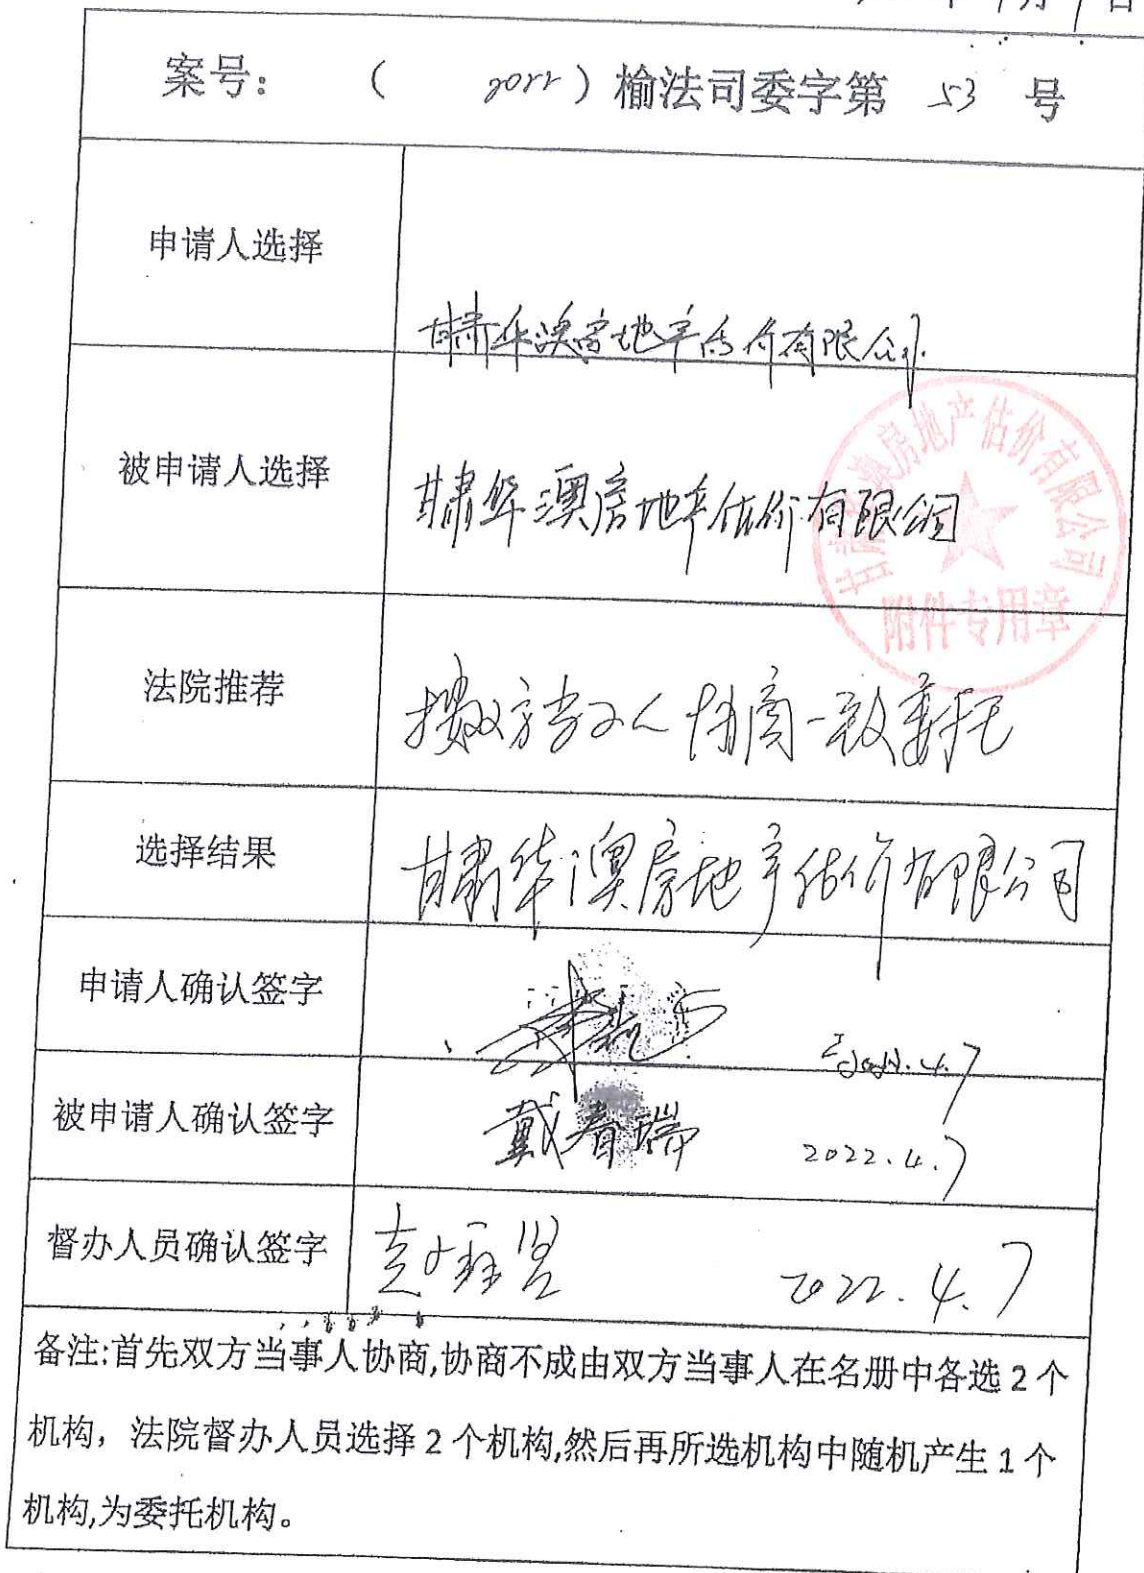 年 4月7日
案号： （ 2022）榆法司委字第 53 号
申请人选择
甘肃华澳房地产估价有限公司
被申请人选择
甘肃华澳房地产估价有限公司
甘肃华澳房地产估价有限公司
附件专用章
法院推荐
按双方当事人协商一致委托
选择结果
甘肃华澳房地产估价有限公司
申请人确认签字
2022.4.7
被申请人确认签字
戴春瑞 2022.4.7
督办人员确认签字
2022.4.7
备注:首先双方当事人协商,协商不成由双方当事人在名册中各选2个
机构，法院督办人员选择2个机构,然后再所选机构中随机产生1个
机构,为委托机构。